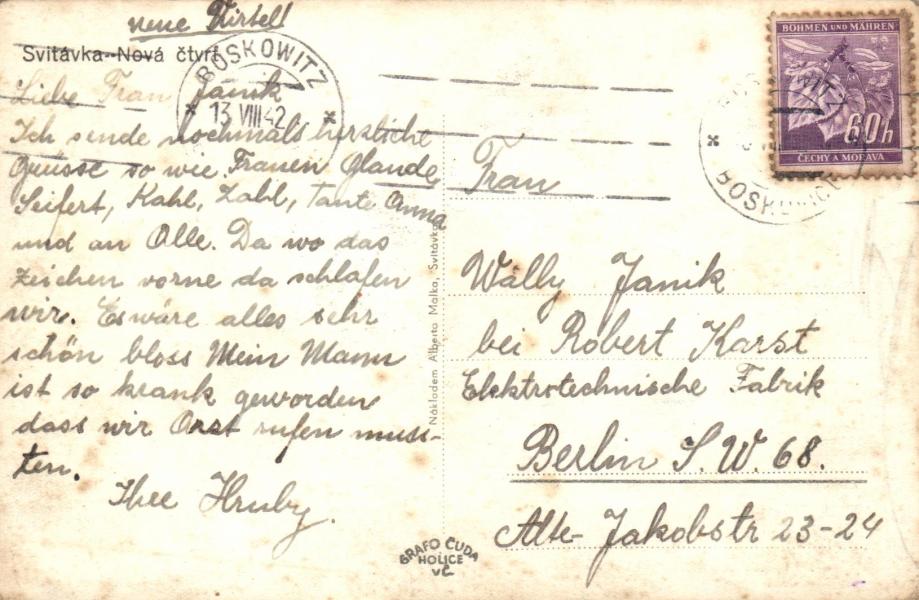 neue Virtel!
Svitávka--Nová čtvrť
BOSKOWITZ
13 VIII 42
Liebe Frau Janik
Ich sende nochmals herzliche
Grüsse so wie Frauen Glande,
Seifert, Kahl, Zahl, Tante Anna
und an Alle. Da wo das
Zeichen vorne da schlafen
wir. Es wäre alles sehr
schön bloss Mein Mann
ist so krank geworden
dass wir Arzt rufen muss-
ten.
Ihre Hruby.
Nákladem Alberta Malka, Svitávka
GRAFO ČUDA
HOLICE
VČ
BÖHMEN UND MÄHREN
60h
ČECHY A MORAVA
BOSKOWITZ
BOSKOVICE
Frau
Wally Janik
bei Robert Karst
Elektrotechnische Fabrik
Berlin S.W. 68.
Alte Jakobstr 23-24